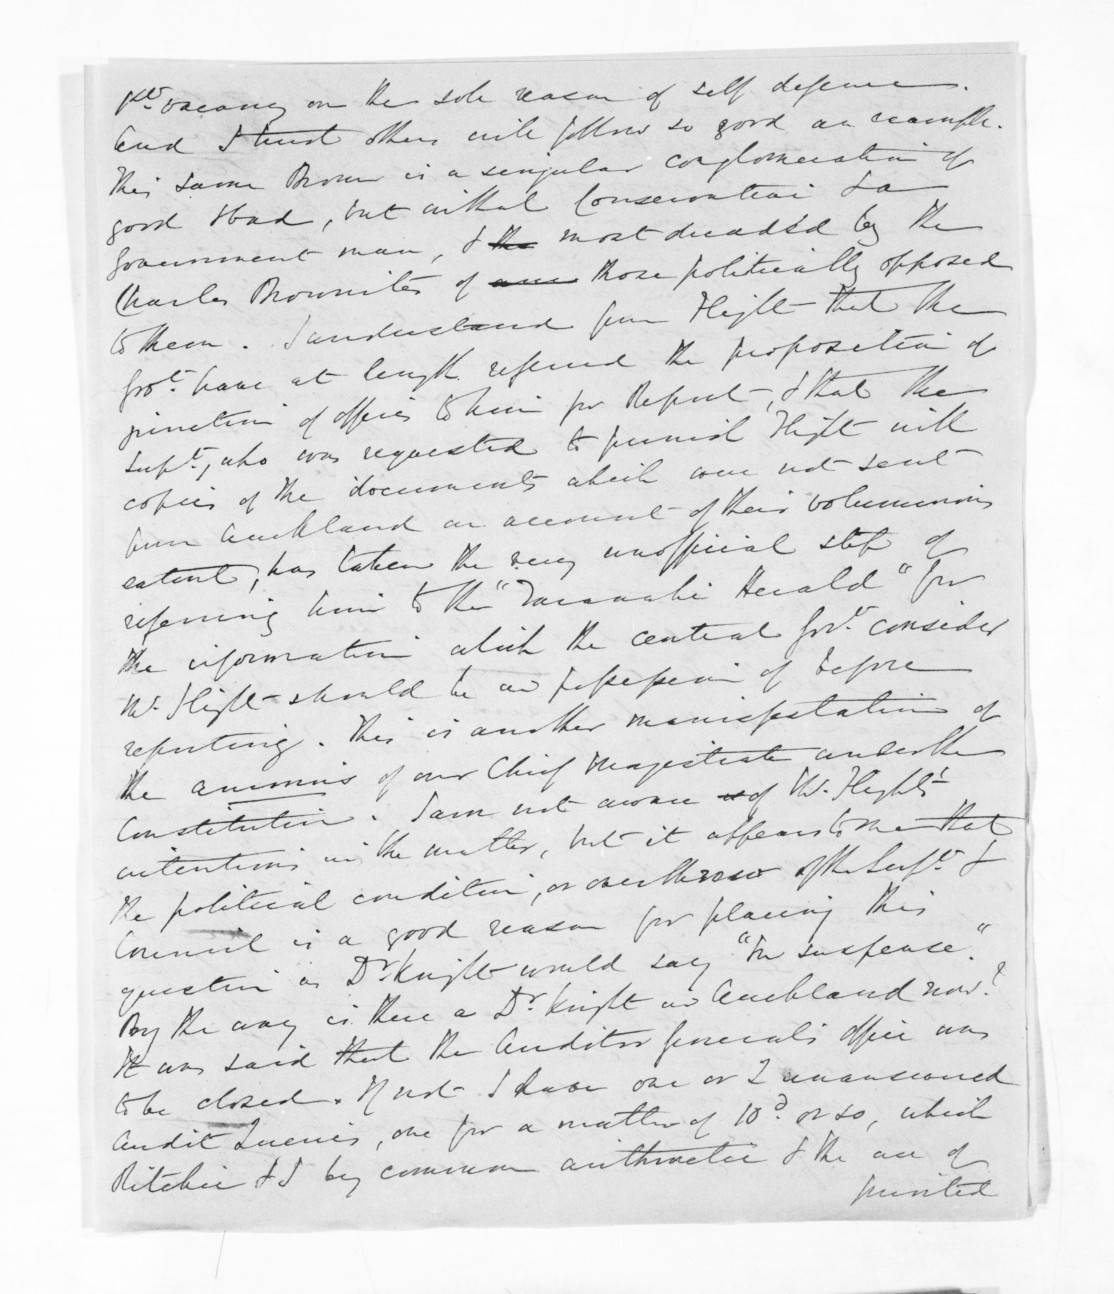 vacancy on the sole reason of self defence.
And I trust others will follow so good an example.
This same Brown is a singular conglomeration of
good & bad, but withal Conservative & a
Government man, & the most dreaded by the
Charles Brownites of those politically opposed
to them. I understand from Flight that the
Govt. have at length referred the proposition of
junction of offices to him for Report, & that the
Supt., who was requested to furnish Flight with
copies of the documents which were not sent
from Auckland on account of their voluminous
extent, has taken the very unofficial step of
referring him to the "Taranaki Herald" for
the information which the central Govt. consider
Mr. Flight should be in possession of before
reporting. This is another manifestation of
the animus of our Chief Magistrate under the
Constitution. I am not aware of Mr. Flight's
intentions in the matter, but it appears to me that
the political condition, or overthrow of the Supt. &
Council is a good reason for placing this
question as Dr. Knight would say "in suspense."
By the way is there a Dr. Knight in Auckland now?
It was said that the Auditor General's office was
to be closed. If not I have one or 2 unanswered
Audit Queries, one for a matter of 10d. or so, which
Ritchie & I by common arithmetic & the use of
printed